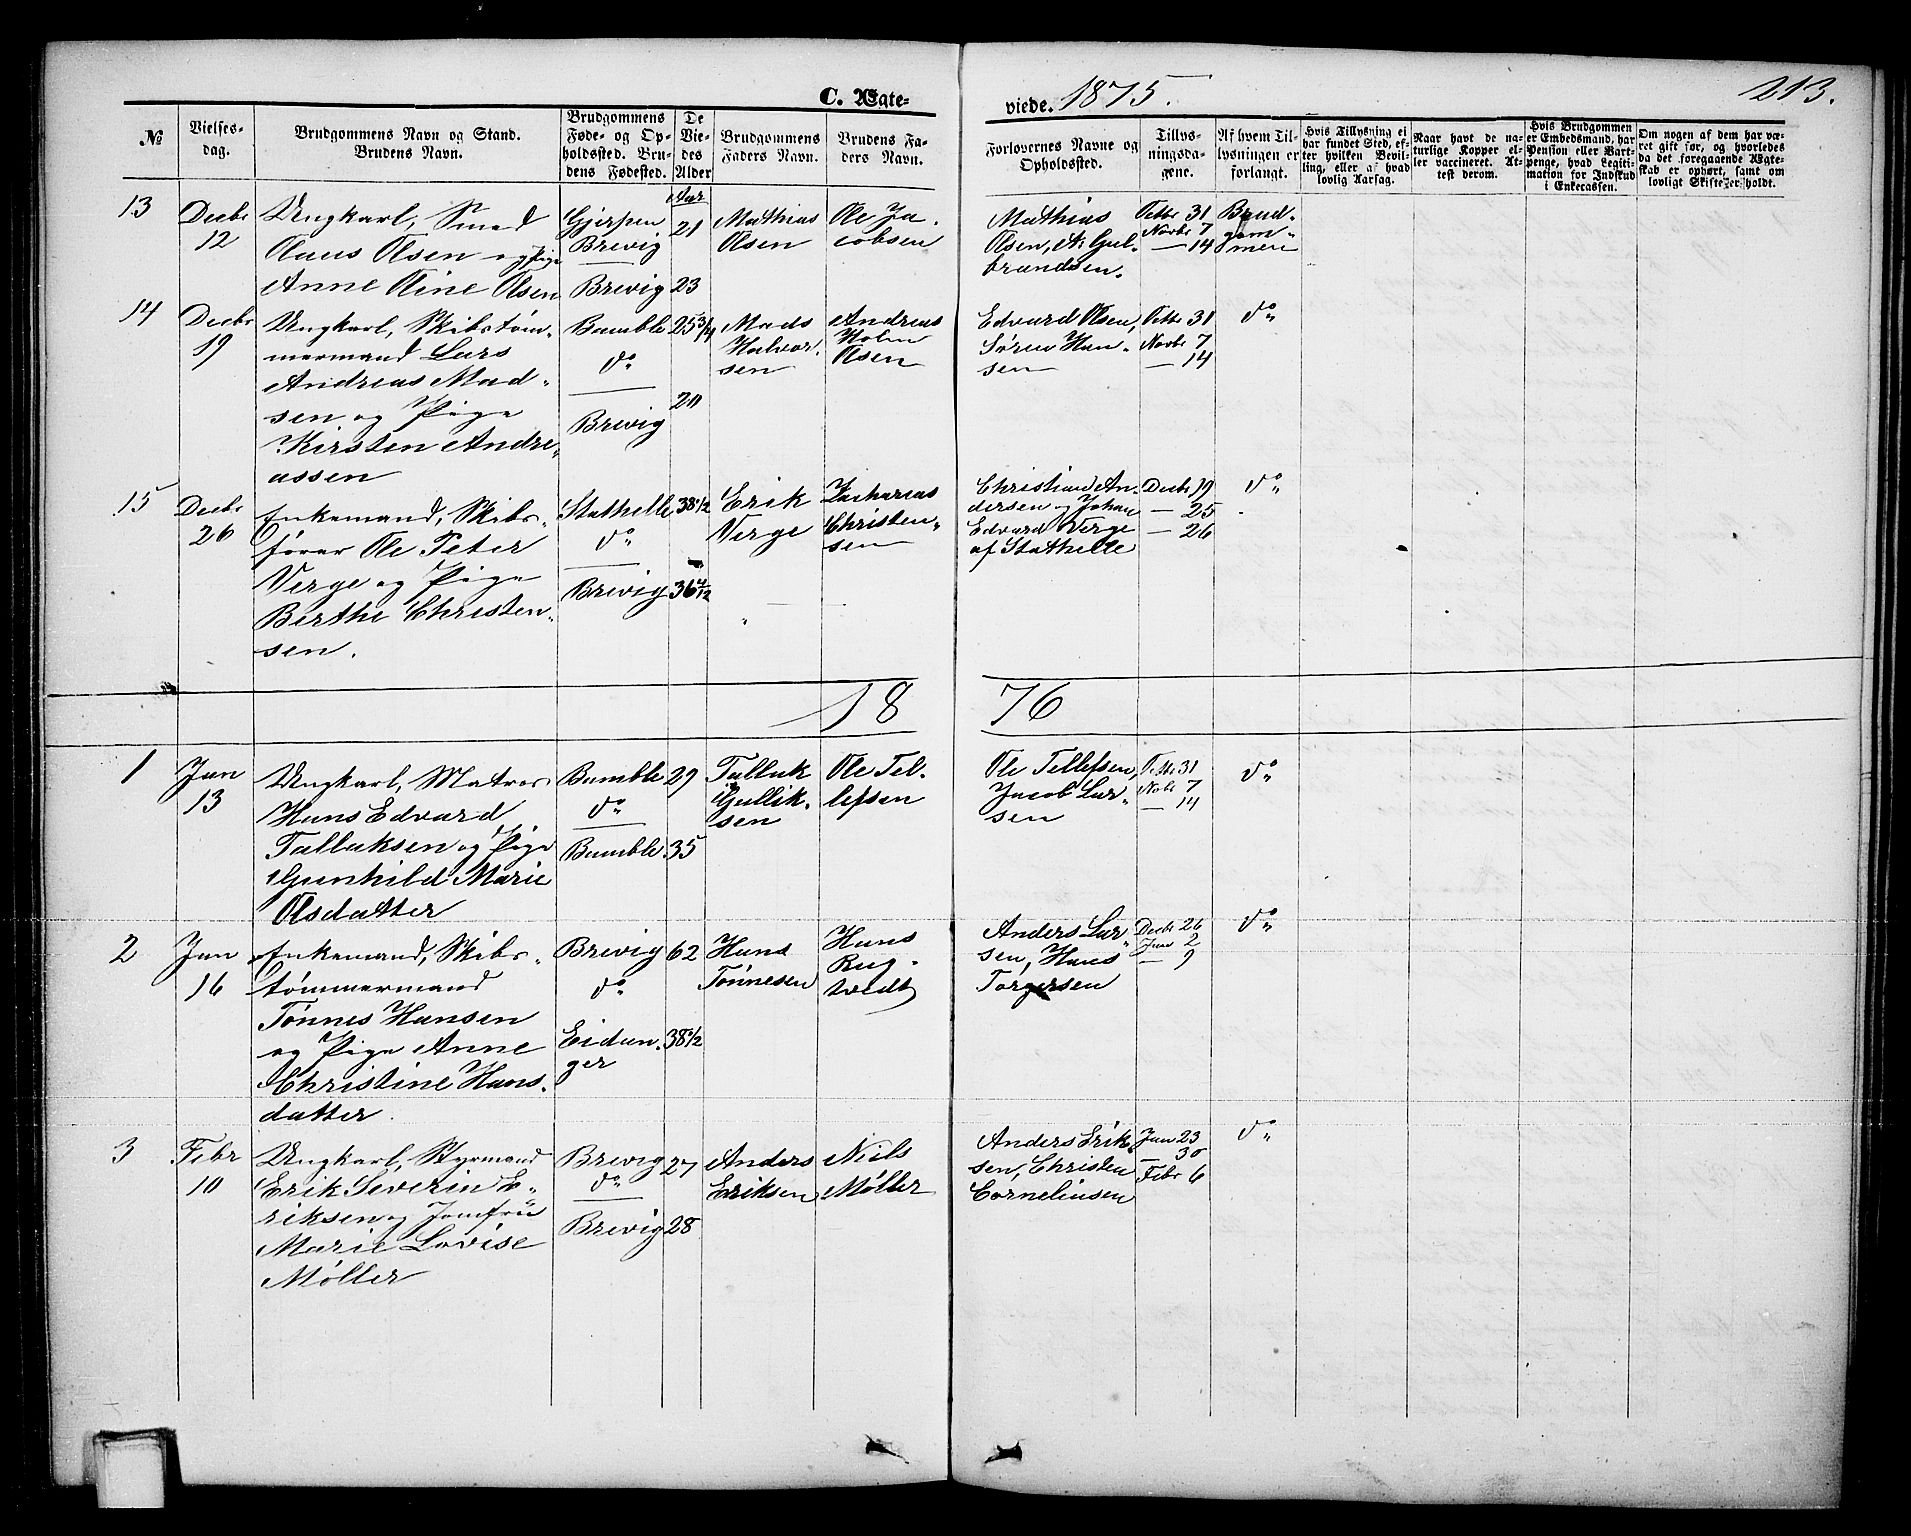 C. Ægte- viede. 1875. 213.
№
Vielses-
dag.
Brudgommens Navn og Stand.
Brudens Navn.
Brudgommens
Føde- og Op-
holdssted. Bru-
dens Fødested.
De
Vie-
des
Alder
Brudgommens
Faders Navn.
Brudens Fa-
ders Navn.
Forlovernes Navne og
Opholdssted.
Tillys-
ningsda-
gene.
Af hvem Til-
lysningen er
forlangt.
Hvis Tillysning ei
har fundet Sted, ef-
ter hvilken Bevil-
ling, eller af hvad
lovlig Aarsag.
Naar havt de na-
turlige Kopper el-
ler vaccineret. At-
test derom.
Hvis Brudgommen
er Embedsmand, har
Pension eller Vart-
penge, hvad Legiti-
mation for Indskud
i Enkecassen.
Om nogen af dem har væ-
ret gift før, og hvorledes
da det foregaaende Ægte-
skab er ophørt, samt om
lovligt Skifte er holdt.
Aar
13
Decbr
12
Ungkarl, Smed
Claus Olsen og Pige
Anne Tine Olsen
Gjerpen
Brevig
Brevig
21
23
Mathias
Olsen
Ole Ja-
cobsen
Mathias
Olsen, N. Gul-
brandsen.
Octbr 31
Novbr 7
— 14
Brud-
gom-
men
14
Decbr
19
Ungkarl, Skibstøm-
mermand Lars
Andreas Mad-
sen og Pige
Kirsten Andre-
assen
Bamble
do
Brevig
25 3/4
20
Mads
Halvor-
sen
Andreas
Holm
Olsen
Edvard Olsen,
Søren Han-
sen
Octbr 31
Novbr 7
— 14
do
15
Decbr
26
Enkemand, Skibs-
fører Ole Peter
Verge og Pige
Berthe Christen-
sen.
Stathelle
do
Brevig
38 1/2
36 4/12
Erik
Verge
Zacharias
Christen-
sen
Christian An-
dersen og Johan
Edvard Verge
af Stathelle
Decbr 19
— 25
— 26
do
1876
1
Jan
13
Ungkarl, Matros
Hans Edvard
Tallaksen og Pige
Gunhild Marie
Olsdatter
Bamble
do
Bamble
29
35
Tallak
Gullik-
sen
Ole Tel-
lefsen
Ole Tellefsen,
Jacob Lar-
sen
Octbr 31
Novbr 7
— 14
do
2
Jan
16
Enkemand, Skibs-
tømmermand
Tønnes Hansen
og Pige Anne
Christine Hans-
datter.
Brevig
do
Eidan-
ger
62
38 1/2
Hans
Tønnesen
Hans
Rug-
tvedt
Anders Lar-
sen, Hans
Torgersen
Decbr 26
Jan 2
— 9
do
3
Febr
10
Ungkarl, Styrmand
Erik Severin E-
riksen og Jomfru
Marie Lovise
Møller
Brevig
do
Brevig
27
28
Anders
Eriksen
Niels
Møller
Anders Erik-
sen, Christen
Corneliusen
Jan 23
— 30
Febr 6
do